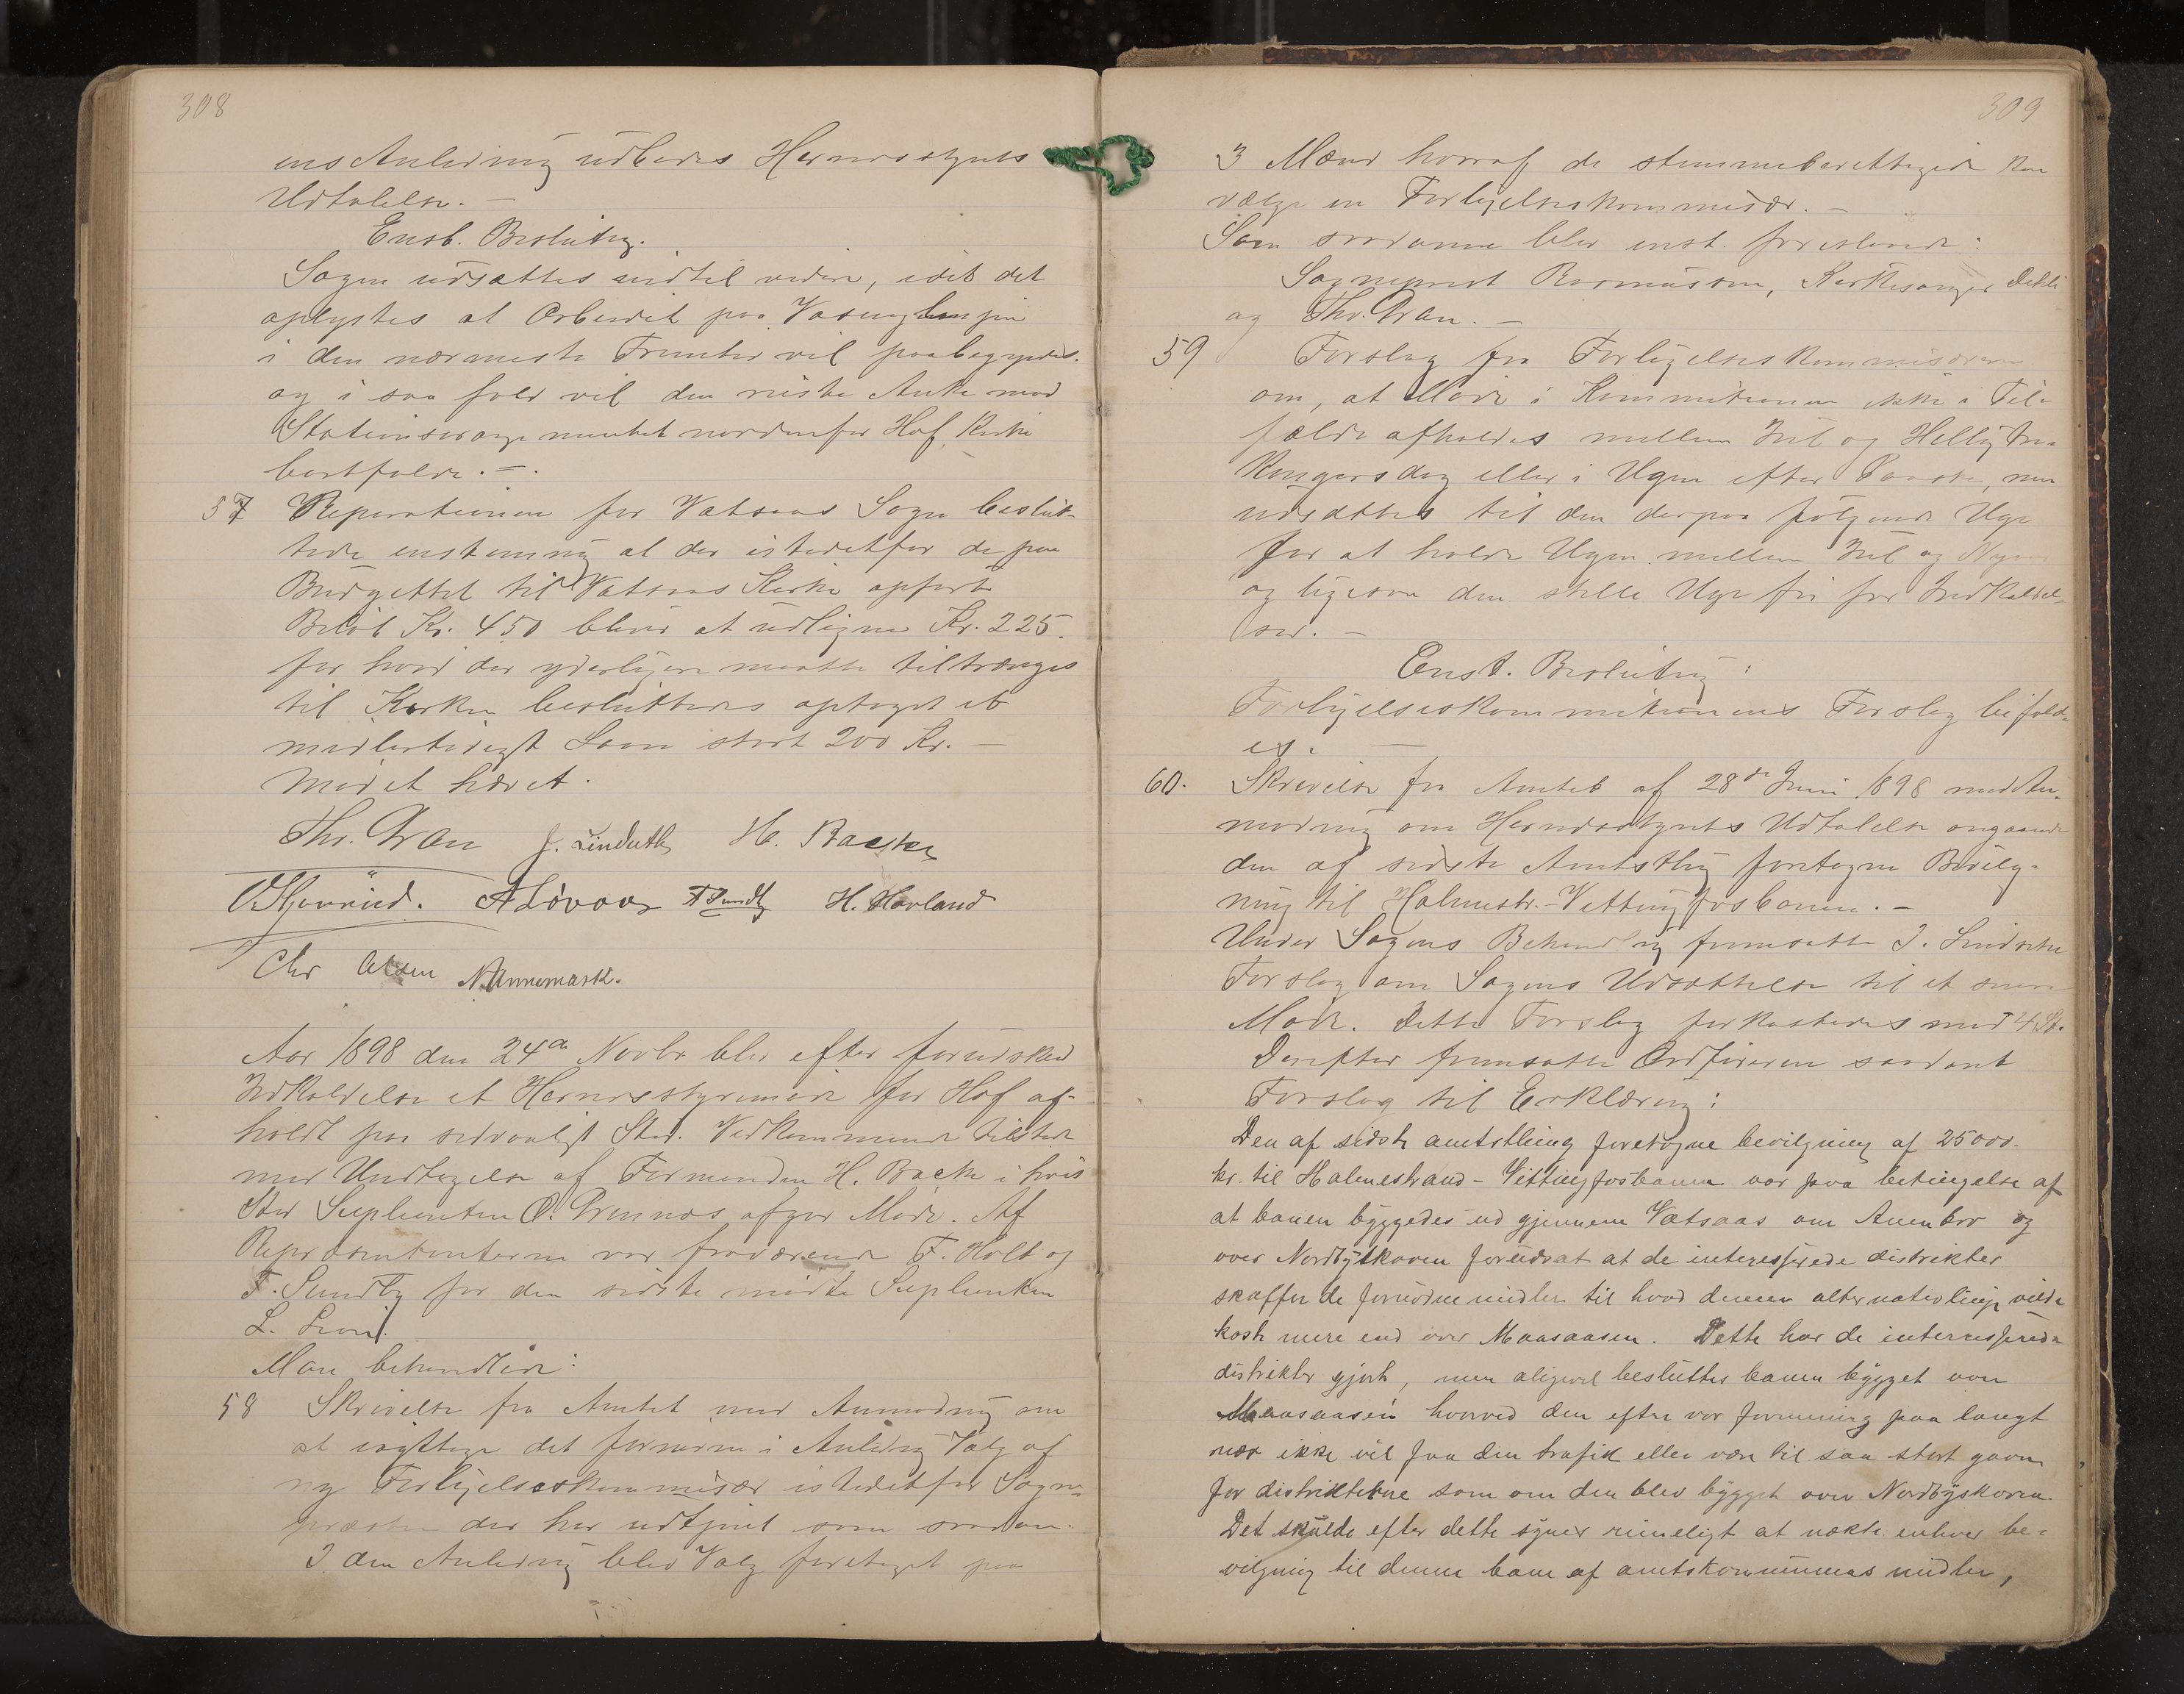 308
ens Anledning udbedes Herredsstyrets
Udtalelse. –
Enst. Beslutng.
Sagen udsættes indtil videre, idet det
oplystes at Arbeidet paa
i den nærmeste Fremtid vil paabegyndes.
og i saa fald vil den reiste Anke mod
Stationsarrangementet nordenfor Hof Kirke
bortfalde. –.
57 Repræsentationen for Vatsaas Sogn beslut-
tede enstemmig at der istedetfor de paa
Budgettet til Vatsaas Kirke opførte
Beløb Kr. 450 bliver at udligne Kr. 225.
for hvad der yderligere maatte tiltrænges
til Kirken besluttedes optaget et
midlertidigt Laan stort 200 Kr. –
Mødet hævet.
Thv. Gran J. Lindseth H. Backe
A Løvaas H. Havland
Chr Olsen N. Unnemark.
Aar 1898 den 24de Novbr blev efter forudskeed
Indkaldelse et Herredsstyremøde for Hof af-
holdt paa sedvanligt Sted. Vedkommende tilstede
med Undtagelse af Formanden H. Backe i hvis
Sted Suplianten O. Grennes afgav Møde. Af
Repræsentanterne var fraværende F. Holt og
F. Sundby for den sidste mødte Suplianten
L.
Man behandlede:
58 Skrivelse fra Amtet med Anmodning om
at iagttage det fornødne i Anledng Valg af
ny Forligelseskommisær istedetfor Sogne-
præsten der har udtjent som saadan.
I den Anledning blev Valg foretaget paa
309
3 Mænd hvoraf de stemmeberettigede kan
vælge en Forligelseskommisær. –
Som saadanne blev enst. foreslaaede:
Sogneprest Rasmussen, Kirkesanger Dehli
og Thv. Gran. –
59 Forslag fra Forligelseskommisærerne
om, at Møde i Kommissionen ikke i Til-
fælde afholdes mellem Jul og Hellig tre
Kongersdag eller i Ugen efter Paaske, men
udsættes til den derpaa følgende Uge
for at holde Ugen mellem Jul og Nyaar
og ligesaa den stille Uge fri for Indkaldel-
ser. –
Enst. Beslutng:
Forligelseskommissionens Forslag bifald-
es. –
60. Skrivelse fra Amtet af 28de Juni 1898 med An-
modning om Herredsstyrets Udtalelse angaaende
den af sidste Amtsthing foretagne Bevilg-
ning til Holmestr.-Vittingfosbanen. –
Under Sagens Behandling fremsatte J. Lindseth
Forslag om Sagens Udsættelse til et senere
Møde. Dette Forslag forkastedes mod 4 St.
Derefter fremsatte Ordføreren saadant
Forslag til Erklæring:
Den af sidste amtsthing foretagne bevilgning af 25000.
kr. til Holmestrand-Vittingfosbanen var paa betingelse af
at banen byggedes ud gjennem Vatsaas om Auenbro og
over Nordbyskoven forudsat at de interesserede distrikter
skaffer de fornødne midler til hvad denne alternativlinje vilde
koste mere end over Maasaasen. Dette har de interesserede
distrikter gjort, men aligevel besluttes banen bygget over
Maasaasen hvorved den efter vor formening paa langt
nær ikke vil faa den trafik eller være til saa stort gavn
for distrikterne som om den blev bygget over Nordbyskoven.
Det skulde efter dette synes rimeligt at nækte enhver be-
vilgning til denne bane af amtskommunens midler,